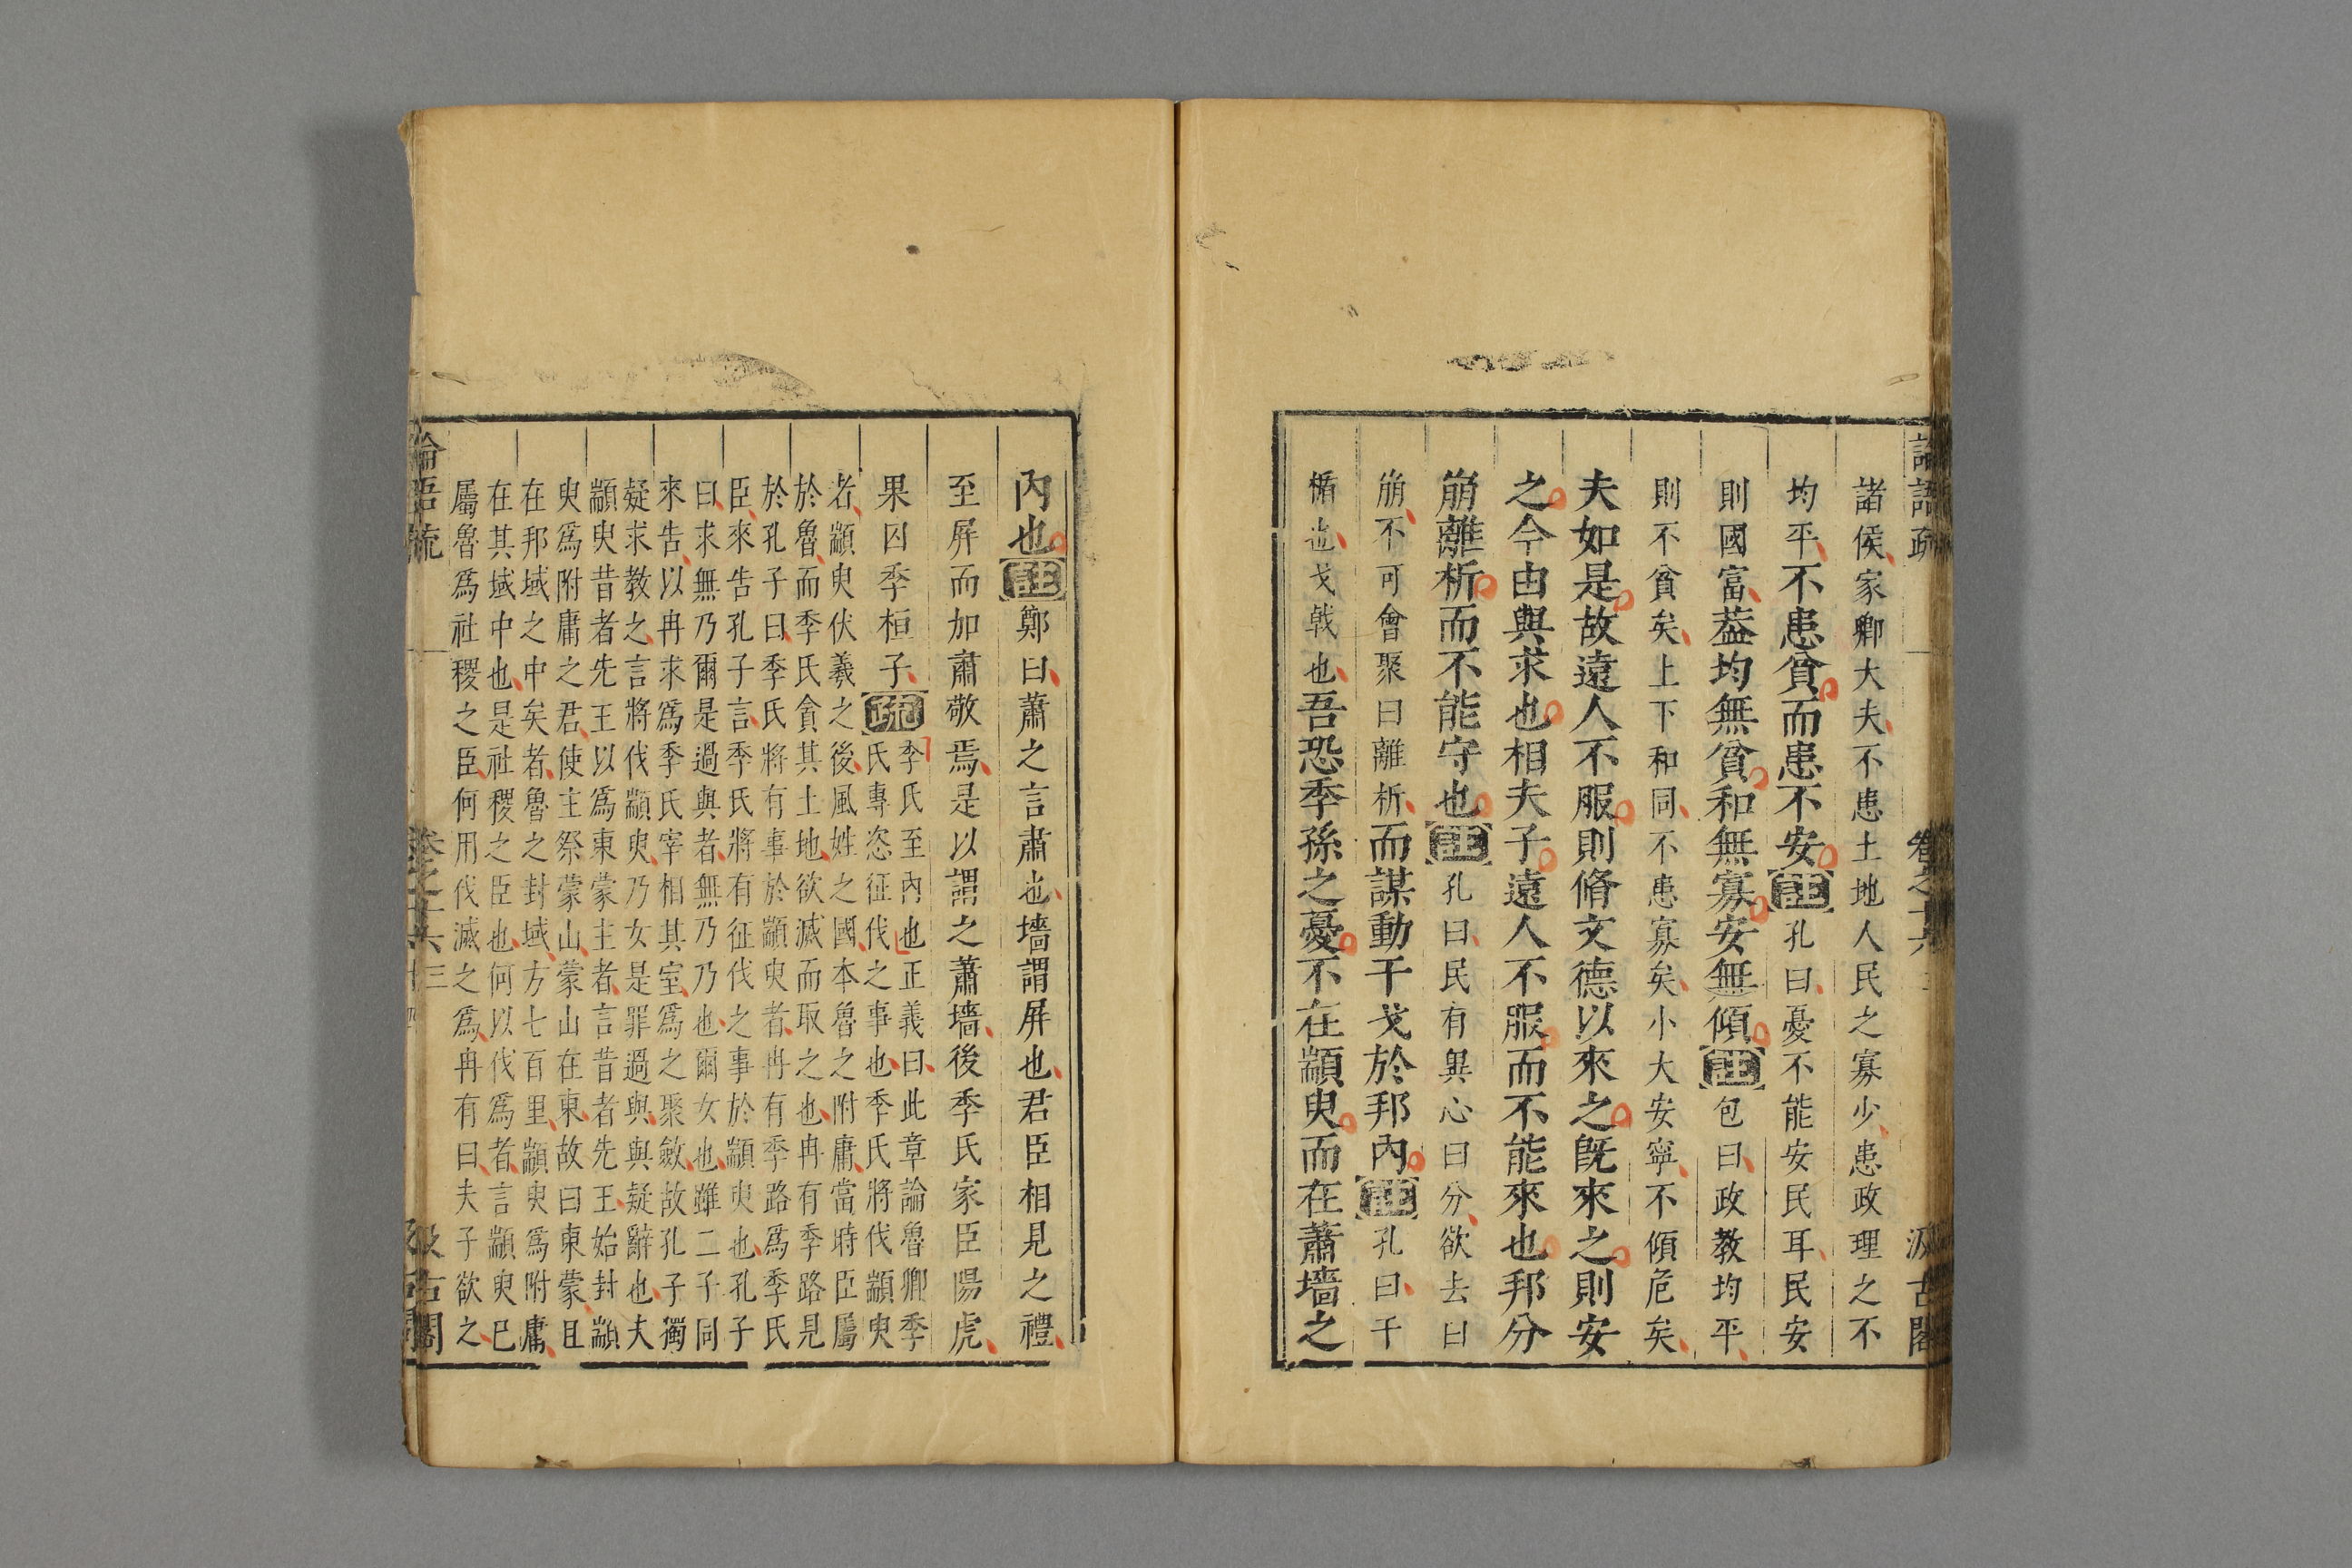 諸侯家卿大夫不患土地人民之寡少患政理之不
均平不患貧而患不安註孔曰憂不能安民耳民安
則國富葢均無貧和無寡安無傾註包曰政教均平
則不貧矣上下和同不患寡矣小大安寧不傾危矣
夫如是故遠人不服則脩文德以來之旣來之則安
之今由與求也相夫子遠人不服而不能來也邦分
崩離析而不能守也註孔曰民有異心曰分欲去曰
崩不可會聚曰離析而謀動干戈於邦內註孔曰干
楯也戈戟也吾恐季孫之憂不在顓臾而在蕭墻之
內也註鄭曰蕭之言肅也墻謂屏也君臣相見之禮
至屏而加肅敬焉是以謂之蕭墻後季氏家臣陽虎
果囚季桓子疏
季氏至內也正義曰此章論魯卿季
氏專恣征伐之事也季氏將伐顓臾
者顓臾伏羲之後風姓之國本魯之附庸當時臣屬
於魯而季氏貪其土地欲滅而取之也冉有季路見
於孔子曰季氏將有事於顓臾者冉有季路爲季氏
臣來告孔子言季氏將有征伐之事於顓臾也孔子
曰求無乃爾是過與者無乃乃也爾女也雖二子同
來告以冉求爲季氏宰相其室爲之聚斂故孔子獨
疑求教之言將伐顓臾乃女是罪過與與疑辭也夫
顓臾昔者先王以爲東蒙主者言昔者先王始封顓
臾爲附庸之君使主祭蒙山蒙山在東故曰東蒙且
在邦域之中矣者魯之封域方七百里顓臾爲附庸
在其域中也是社稷之臣也何以伐爲者言顓臾已
屬魯爲社稷之臣何用伐滅之爲冉有曰夫子欲之
論語疏 卷之十六 三 汲古閣
論語疏 卷之十六 三 汲古閣